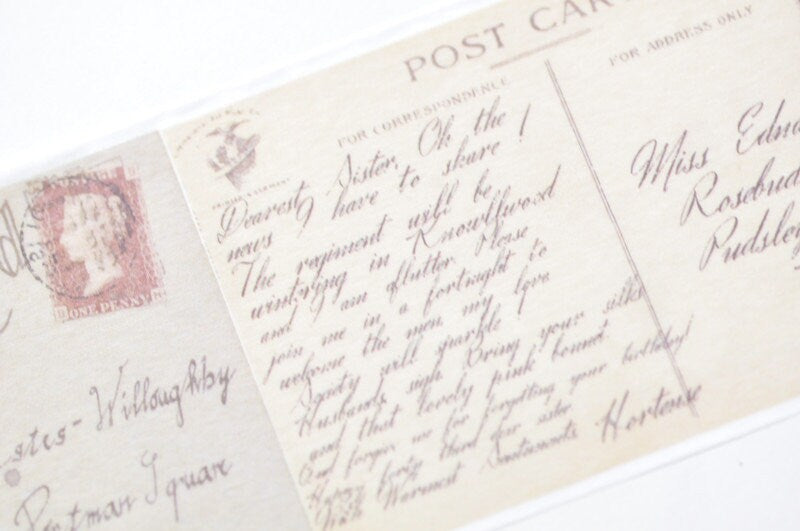 POST CAR
FOR CORRESPONDENCE
FOR ADDRESS ONLY
Dearest Sister, Oh the
news I have to share!
The regiment will be
wintering in Knowllwood
and I am aflutter. Please
join me in a fortnight to
welcome the men, my love
Society will sparkle!
Husbands sigh. Bring your silks
and that lovely pink bonnet
And forgive me for forgetting your birthday!
Happy forty third dear sister
With Warmest Sentiments Hortense
Miss Edn
Rosebud
Pudsley
ONE PENNY
stes-Willoughby
Portman Squar